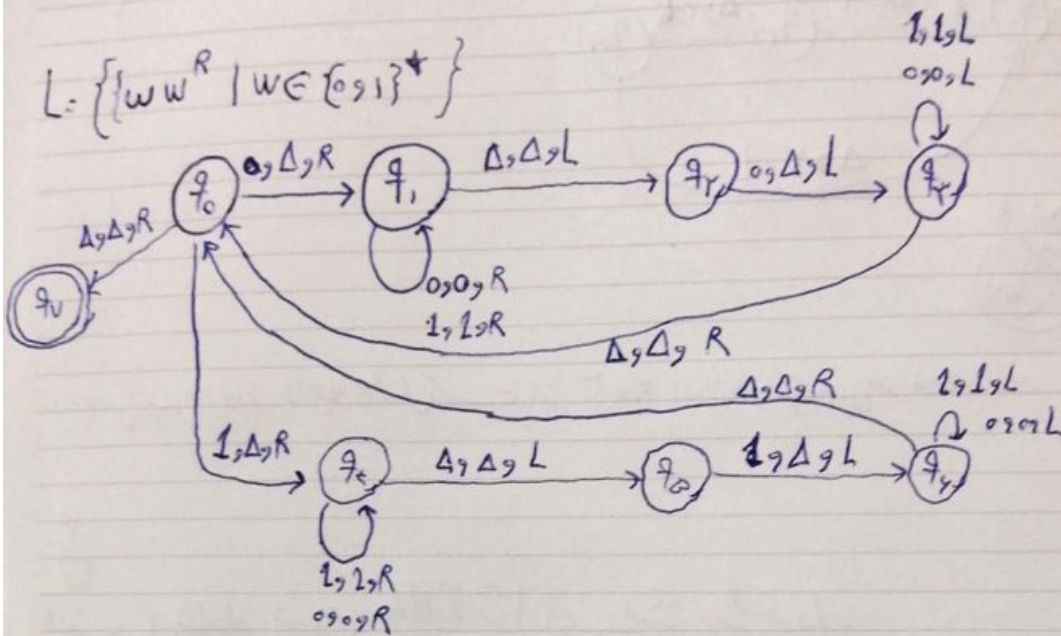 L = {{ww^R | w ∈ {0,1}*}
1,1,L
0,0,L
q₀
0,Δ,R
q₁
Δ,Δ,L
q۲
0,Δ,L
q۳
Δ,Δ,R
q۷
0,0,R
1,1,R
Δ,Δ,R
Δ,Δ,R
1,1,L
0,0,L
1,Δ,R
q۴
Δ,Δ,L
q۵
1,Δ,L
q۶
1,1,R
0,0,R